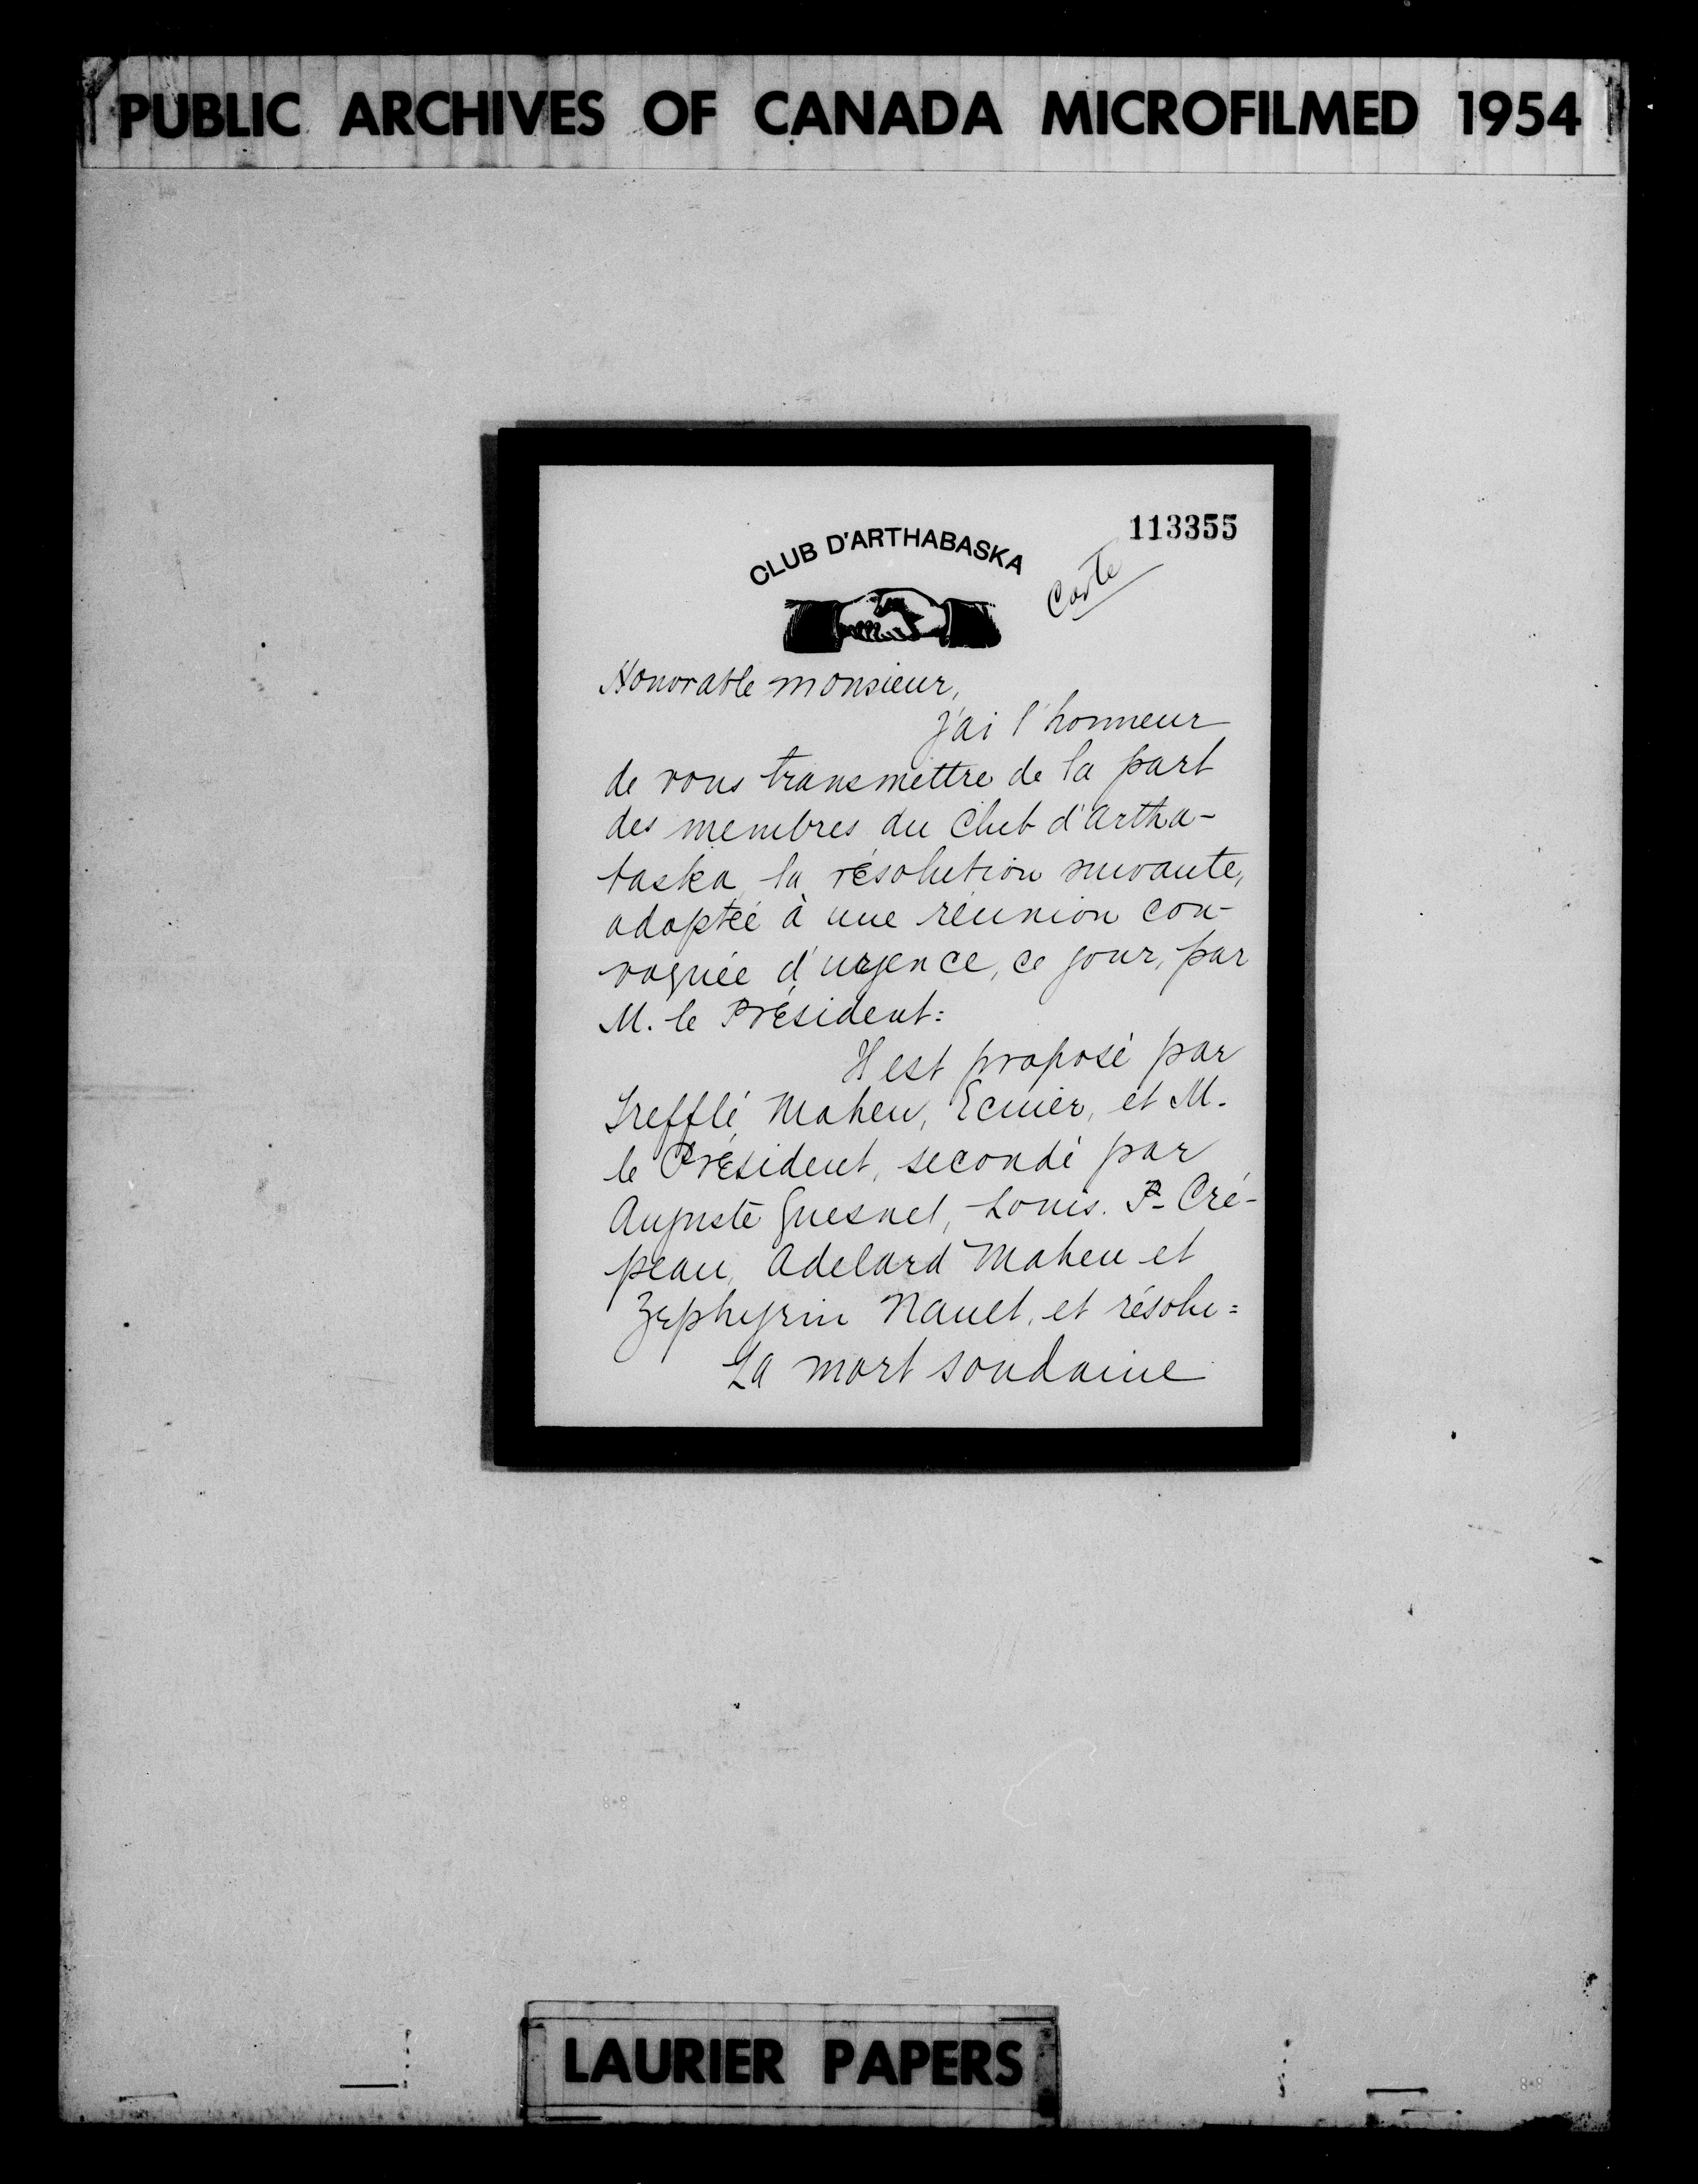 PUBLIC ARCHIVES OF CANADA MICROFILMED 1954
113355
CLUB D'ARTHABASKA
Carte
Honorable monsieur,
j'ai l'honneur
de vous transmettre de la part
des membres du Club d'Artha-
baska, la résolution suivante,
adoptée à une réunion con-
voquée d'urgence, ce jour, par
M. le Président:
Il est proposé par
Trefflé Maheu, Ecuier, et M.
le Président, secondé par
Auguste Quesnel, Louis. P. Cré-
peau, Adelard Maheu et
Zephyrin Nault, et résolu =
La mort soudaine
LAURIER PAPERS